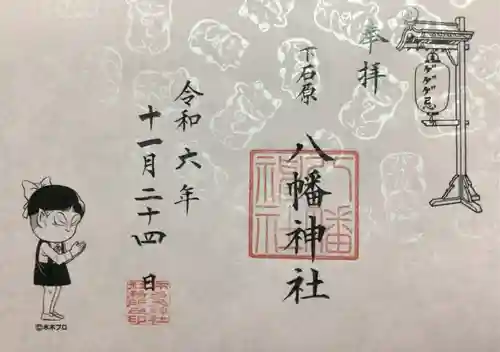 奉拝
ゲゲゲ忌
下石原
八幡神社
八幡神社
令和六年
十一月二十四日
©水木プロ